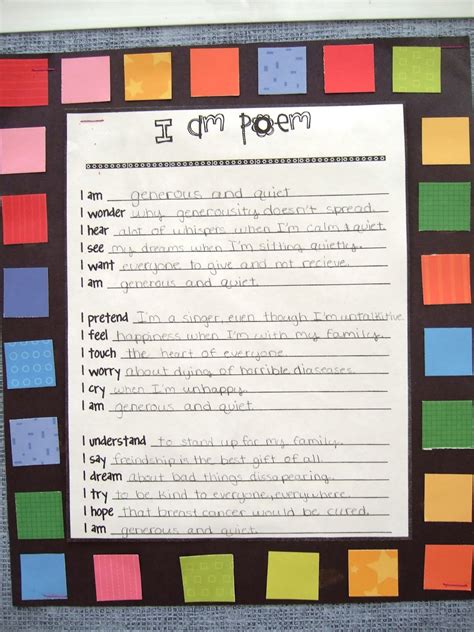 I am poem
I am generous and quiet
I wonder why generousity doesn't spread.
I hear alot of whispers when I'm calm & quiet
I see my dreams when I'm sitting quietly.
I want everyone to give and not recieve.
I am generous and quiet.
I pretend I'm a singer, even though I'm untalkitive
I feel happiness when I'm with my family.
I touch the heart of everyone.
I worry about dying of horrible diaseases.
I cry when I'm unhappy.
I am generous and quiet.
I understand to stand up for my family.
I say freindship is the best gift of all.
I dream about bad things dissapearing.
I try to be kind to everyone, everywhere.
I hope that breast cancer would be cured.
I am generous and quiet.